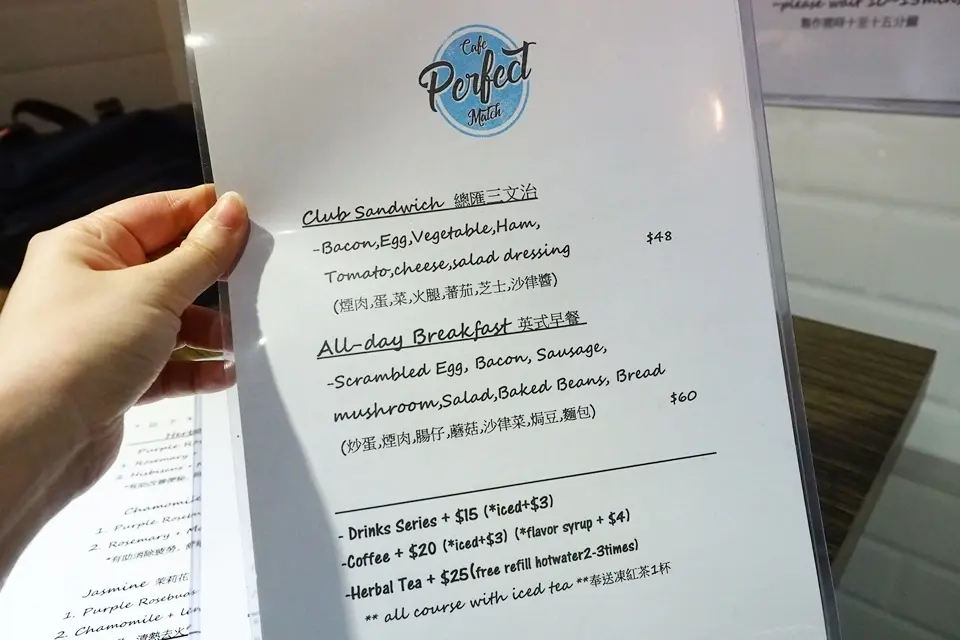 ~please wait 10~15mins
製作需時十至十五分鐘
Cafe
Perfect
Match
Club Sandwich 總匯三文治
-Bacon,Egg,Vegetable,Ham,
Tomato,cheese,salad dressing
$48
(煙肉,蛋,菜,火腿,蕃茄,芝士,沙律醬)
All-day Breakfast 英式早餐
-Scrambled Egg, Bacon, Sausage,
mushroom,Salad,Baked Beans, Bread
$60
(炒蛋,煙肉,腸仔,蘑菇,沙律菜,焗豆,麵包)
- Drinks Series + $15 (*iced+$3)
-Coffee + $20 (*iced+$3) (*flavor syrup + $4)
-Herbal Tea + $25(free refill hotwater2-3times)
** all course with iced tea **奉送凍紅茶1杯
Purple
Rosemary
Chamomile
1. Purple
2. Rosemary +
*有助消除疲勞,
Jasmine 茉莉花
1. Purple Rosebuds
2. Chamomile +